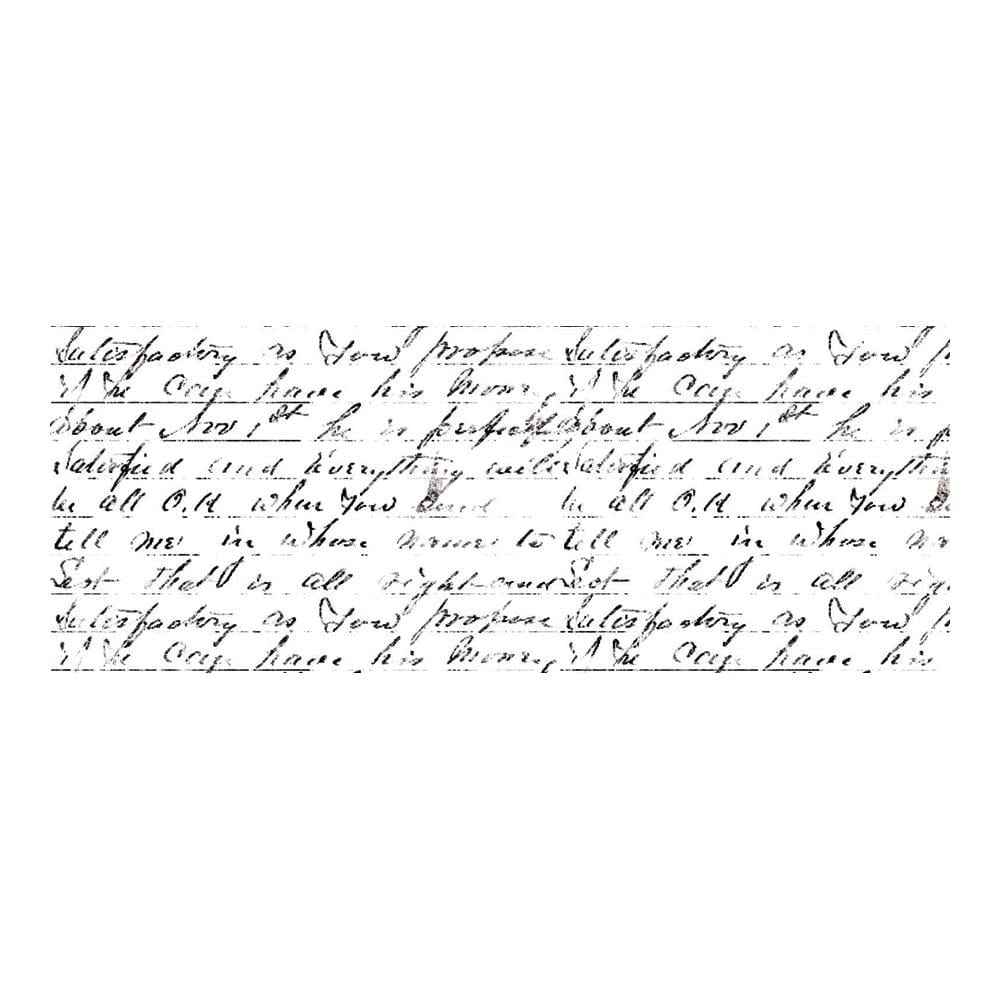 Satisfactory as You propose Satisfactory as You
if he Can have his Money, if he Can have his
about Nov 1st he is perfectly about Nov 1st he is
Satisfied and Everything will Satisfied and Everything
be all O.K when You send be all O.K when You
tell me in whose name to tell me in whose
that is all right and that is all
Satisfactory as You propose Satisfactory as You
if he Can have his Money, if he Can have his